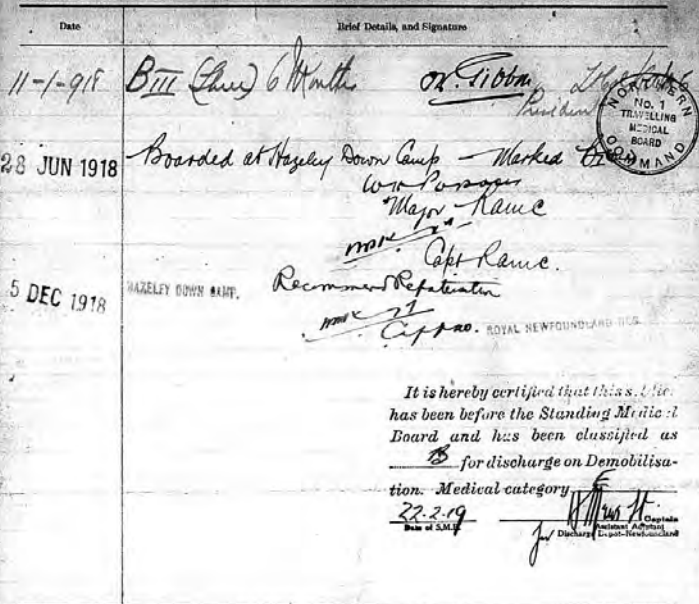 Date Brief Details, and Signature
11-1-918 BIII (three) 6 Months
President
NORTHERN COMMAND
No. 1
TRAVELLING
MEDICAL
BOARD
28 JUN 1918 Boarded at Hazeley Down Camp - Marked
Major RAMC
Capt RAMC.
5 DEC 1918 HAZELEY DOWN CAMP. Recommend Repatriation
ROYAL NEWFOUNDLAND REG.
It is hereby certified that this soldier
has been before the Standing Medical
Board and has been classified as
B for discharge on Demobilisa-
tion. Medical category E
22-2-19 Captain
Date of S.M.B. Assistant Adjutant
for Discharge Depot-Newfoundland